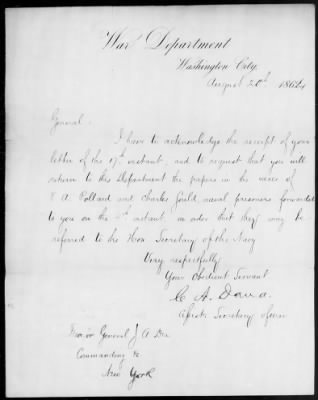 War Department
Washington City,
August 20th 1864
General:
I have to acknowledge the receipt of your
letter of the 17th instant, and to request that you will
return to this Department the papers in the cases of
E A. Pollard and Charles Gould, naval prisoners forwarded
to you on the instant, in order that they may be
referred to the Hon Secretary of the Navy
Very respectfully
Your Obedient Servant
C A. Dana.
Asst. Secretary of War
Major General J A Dix
Commanding &c
New York